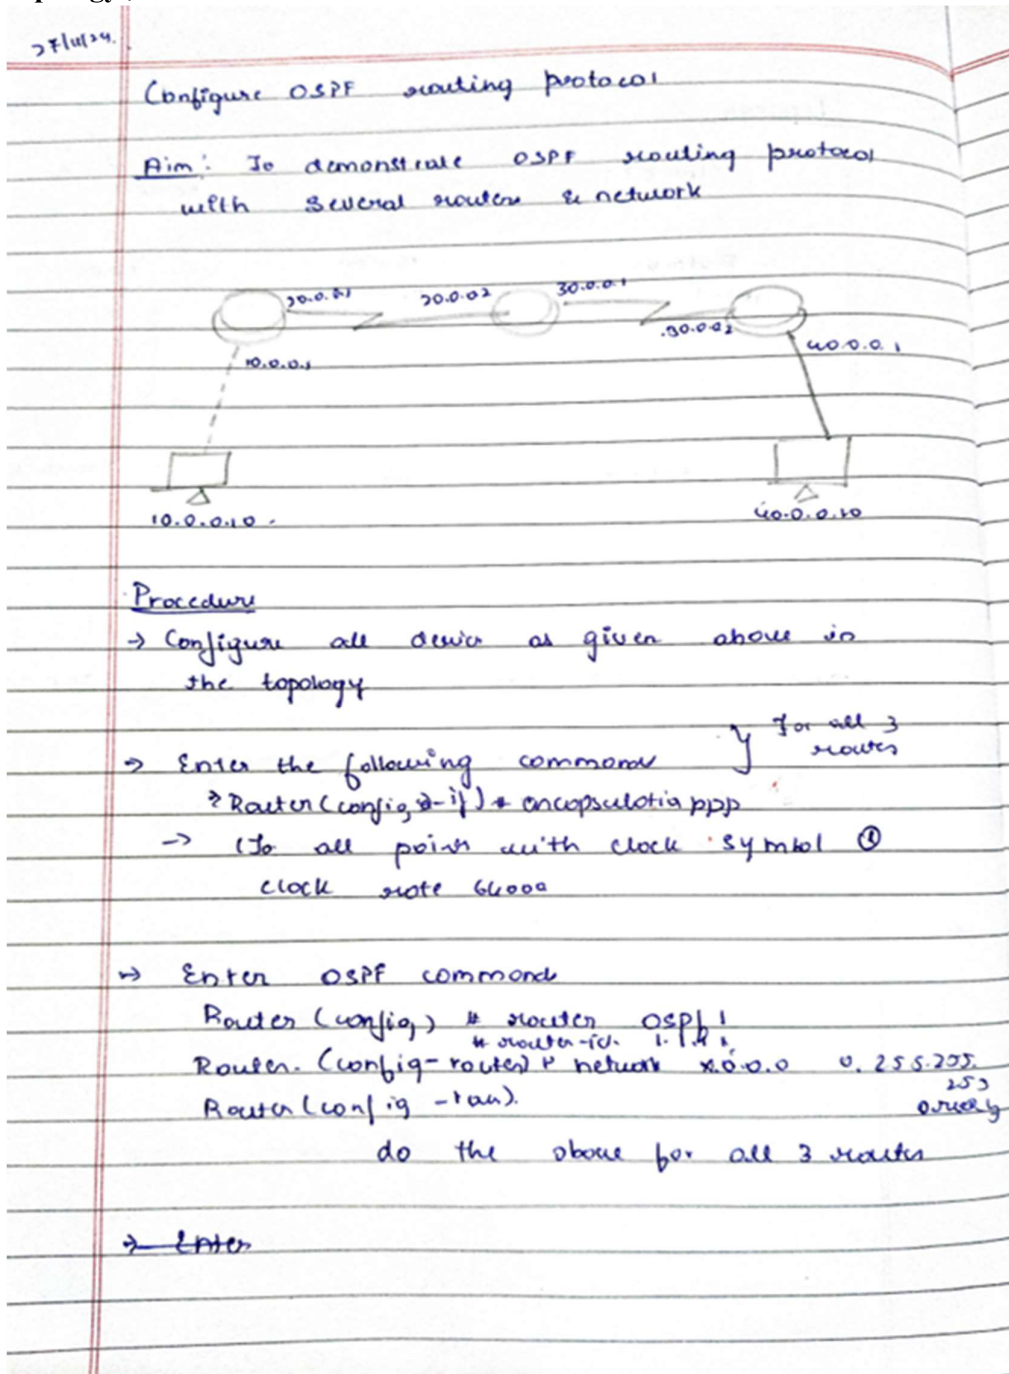 27/11/24.
Configure OSPF routing protocol
Aim: To demonstrate OSPF routing protocol
with several routers & network
20.0.0.1 20.0.02 30.0.0.1
.30.0.02
10.0.0.1 40.0.0.1
10.0.0.10. 40.0.0.10
Procedure
→ Configure all device as given above in
the topology
→ Enter the following commands } For all 3
routes
Router (config-if) # encapsulation ppp
→ (To all point with clock symbol
clock rate 64000
→ Enter OSPF commands
Router (config) # router OSPF 1
# router-id. 1.1.1.1
Router. (config-router) # network x.0.0.0 0.255.255.
255
Router (config -rou).
do the above for all 3 router
→ Enter